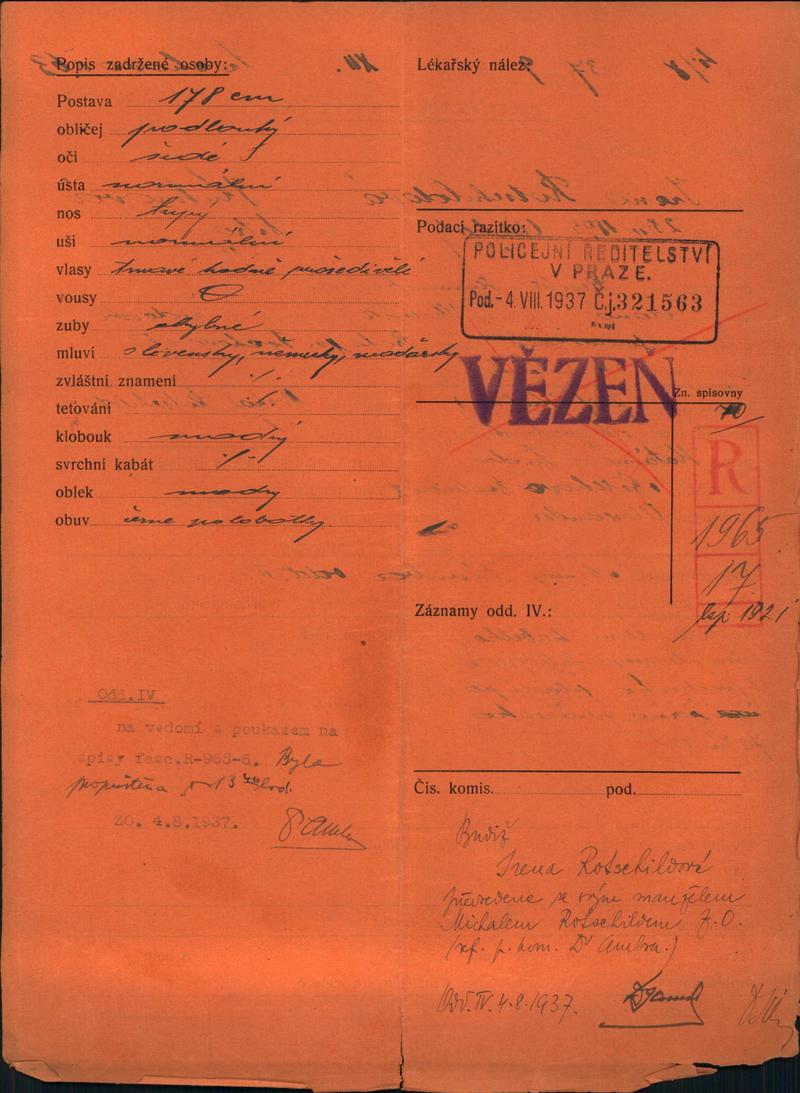 Popis zadržené osoby:
Postava 178 cm
obličej podlouhlý
oči šedé
ústa normální
nos tupý
uši normální
vlasy tmavé hodně prošedivělé
vousy O
zuby chybné
mluví slovensky, německy, maďarsky
zvláštní znamení ·/·
tetování ·/·
klobouk modrý
svrchní kabát ·/·
oblek modrý
obuv černé polobotky
Odd.IV
na vědomí s poukazem na
spisy fasc.R-963-6. Byla
propuštěna v 13 40 hod.
ZO. 4.8.1937.
Lékařský nález:
Podací razítko:
POLICEJNÍ ŘEDITELSTVÍ
V PRAZE.
Pod. - 4. VIII. 1937 Č.j. 321563
VĚZEŇ
Zn. spisovny
R
1965
17
1921
Záznamy odd. IV.:
Čís. komis. pod.
Budiž
Irena Rotschildová
předvedena se svým manželem
Michalem Rotschildem Z.O.
(ref. p. kom. Dr Ambra.)
Odd. IV. 4.8.1937.